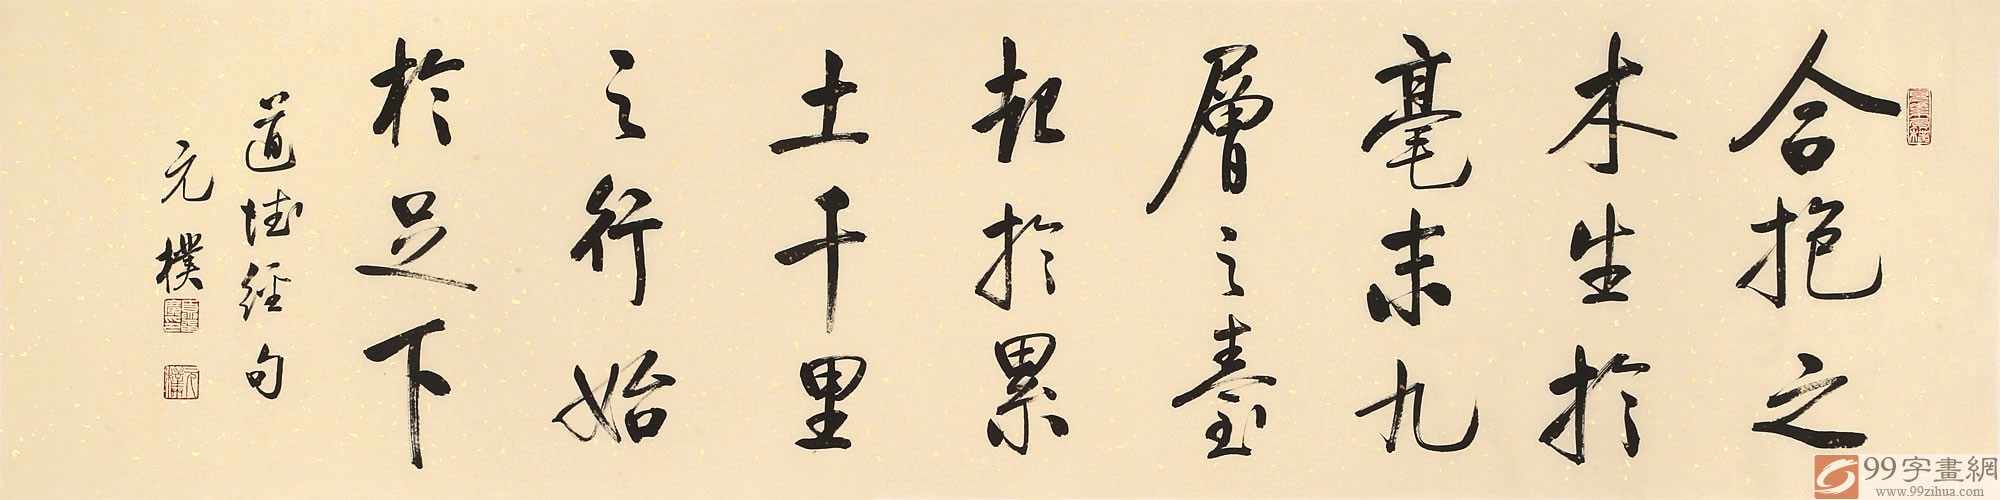 合抱之
木生於
毫末九
層之臺
起於累
土千里
之行始
於足下
道德經句
元樸
99字畫網
www.99zihua.com